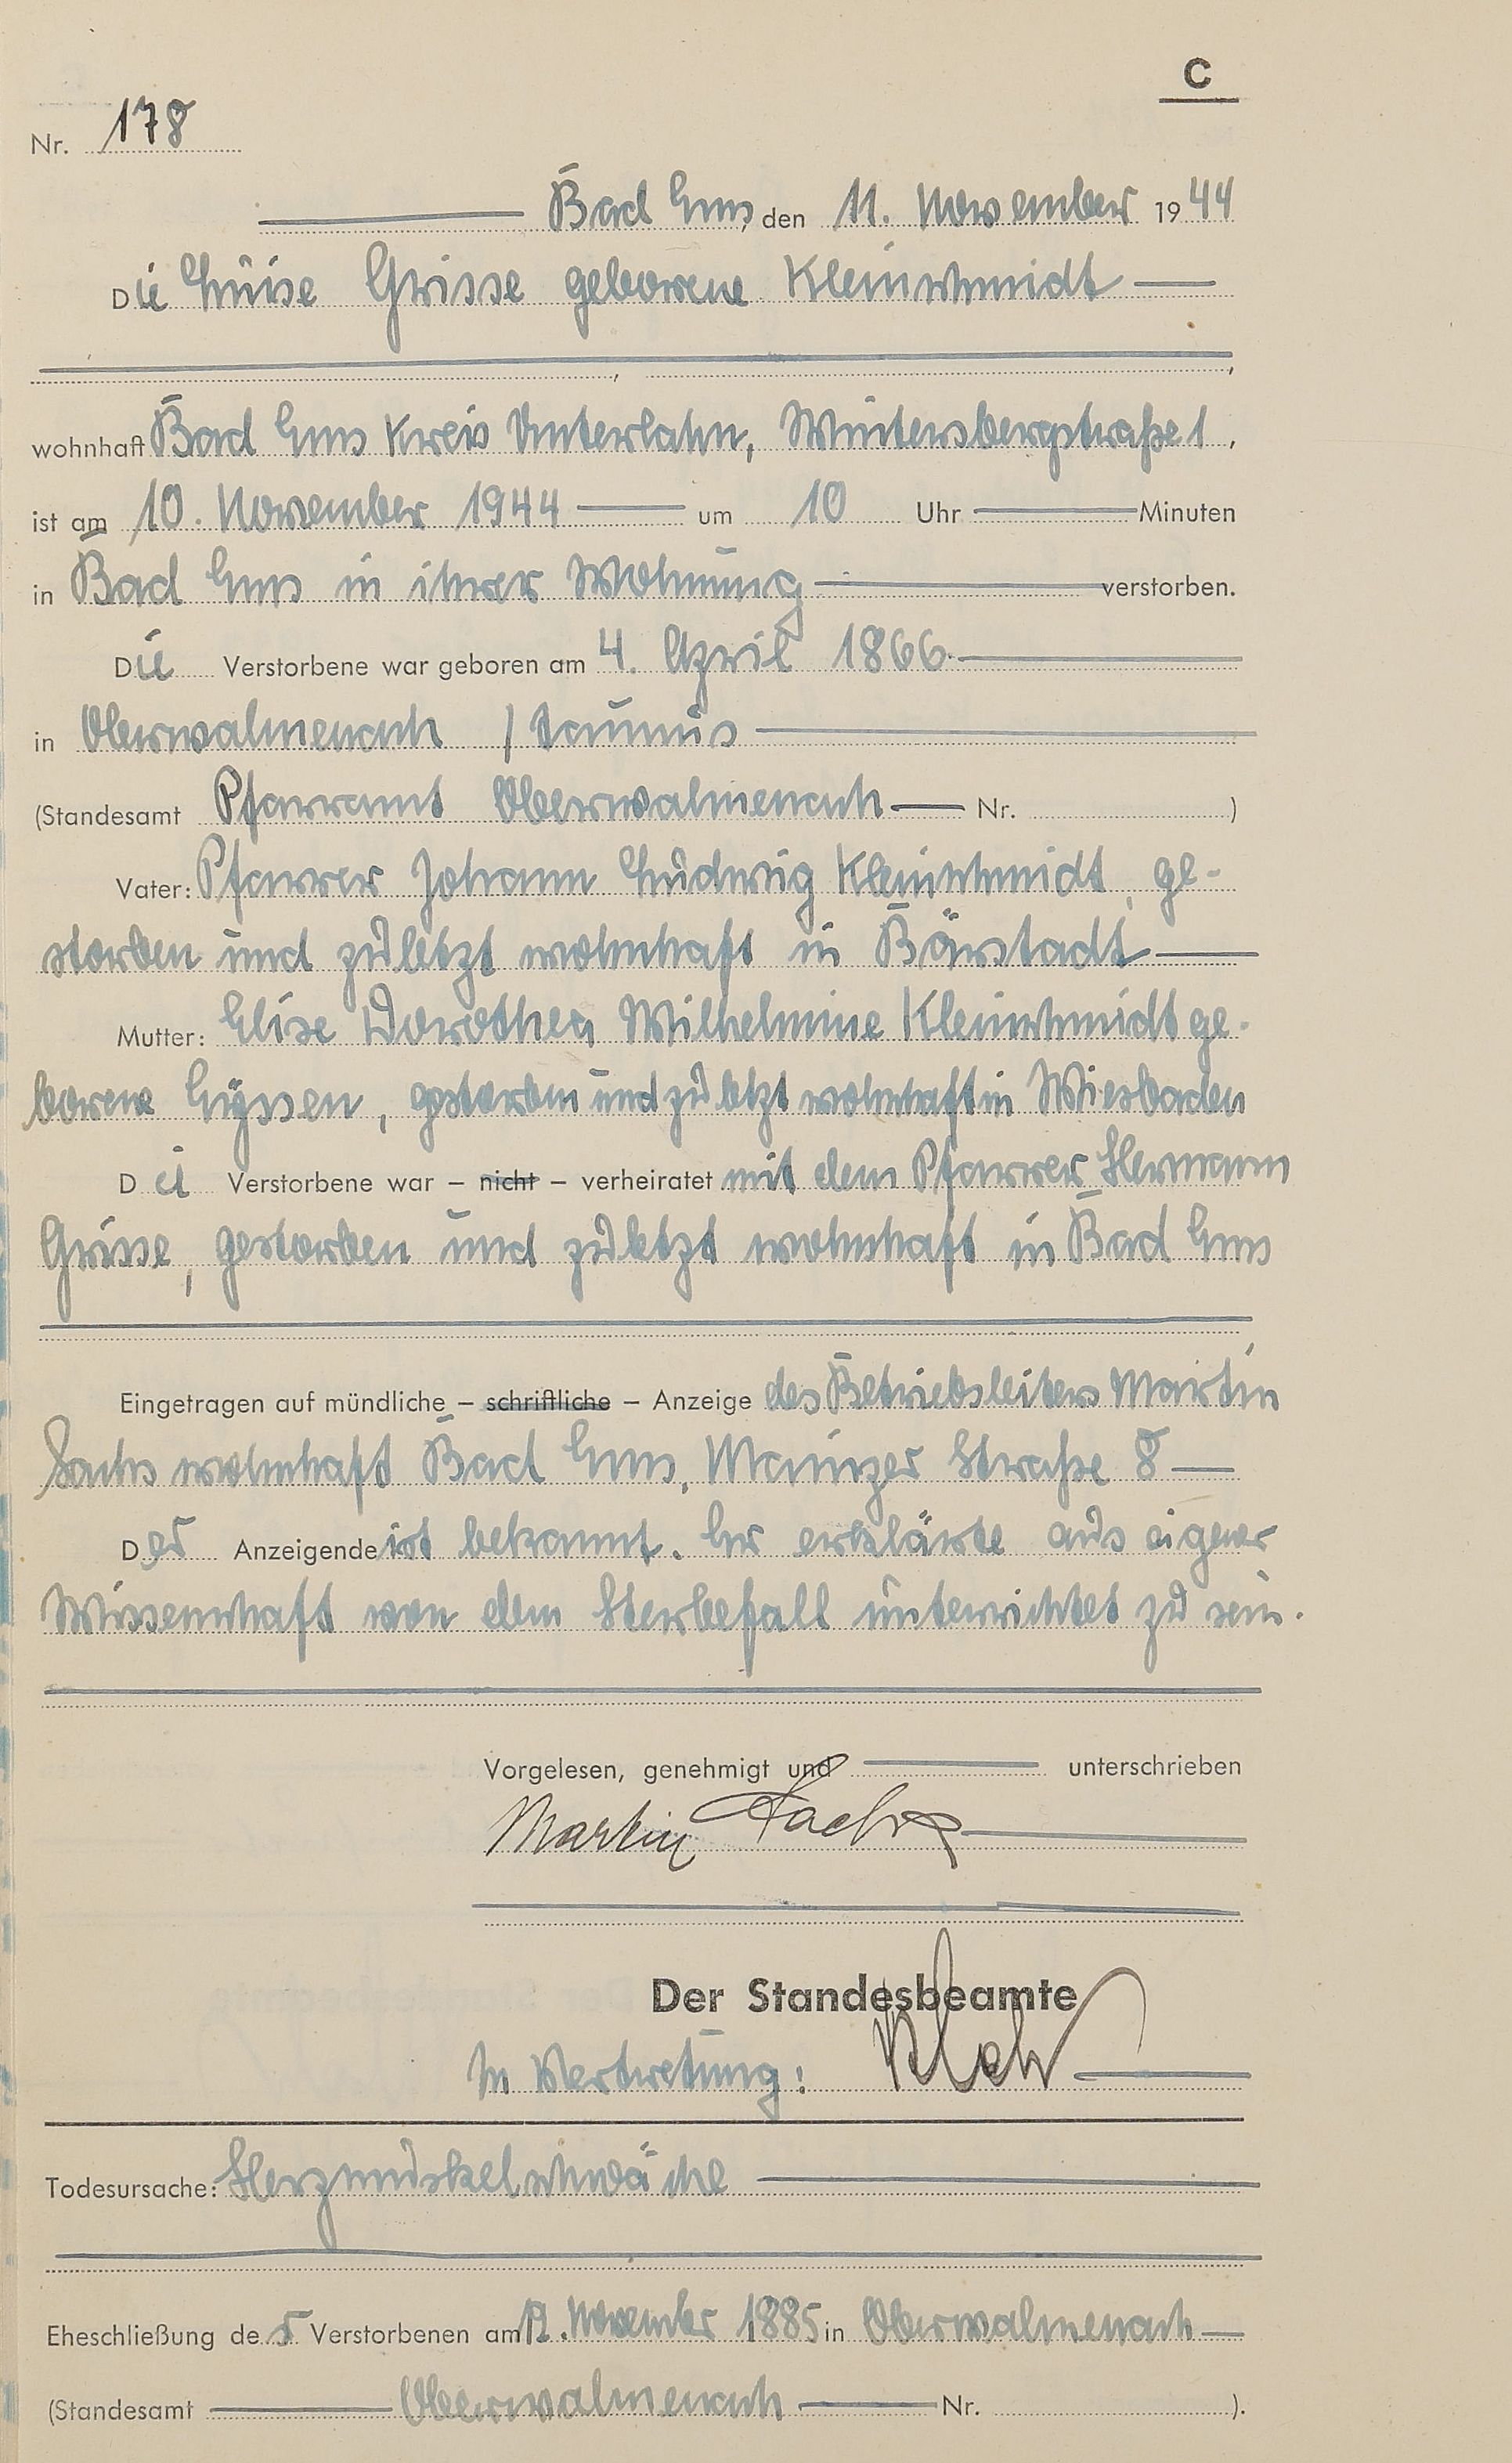 C
Nr. 178
Bad Ems, den 11. November 1944
Die Luise Grisse geborene Kleinschmidt
wohnhaft Bad Ems Kreis Unterlahn, Wintersbergstraße 1,
ist am 10. November 1944 um 10 Uhr Minuten
in Bad Ems in ihrer Wohnung verstorben.
Die Verstorbene war geboren am 4. April 1866
in Oberwalmenach / Taunus
(Standesamt Pfarramt Oberwalmenach Nr. )
Vater: Pfarrer Johann Ludwig Kleinschmidt, ge-
storben und zuletzt wohnhaft in Bärstadt
Mutter: Elise Dorothea Wilhelmine Kleinschmidt ge-
borene Lÿssen, gestorben und zuletzt wohnhaft in Wiesbaden
Dei Verstorbene war – nicht – verheiratet mit dem Pfarrer Hermann
Grisse, gestorben und zuletzt wohnhaft in Bad Ems
Eingetragen auf mündliche – schriftliche – Anzeige des Betriebsleiters Martin
Sachs wohnhaft Bad Ems, Mainzer Straße 8
Der Anzeigende ist bekannt. Er erklärte aus eigener
Wissenschaft von dem Sterbefall unterrichtet zu sein.
Vorgelesen, genehmigt und unterschrieben
Martin Sachs
Der Standesbeamte
In Vertretung:
Todesursache: Herzmuskelschwäche
Eheschließung der Verstorbenen am 12. November 1885 in Oberwalmenach
(Standesamt Oberwalmenach Nr. ).